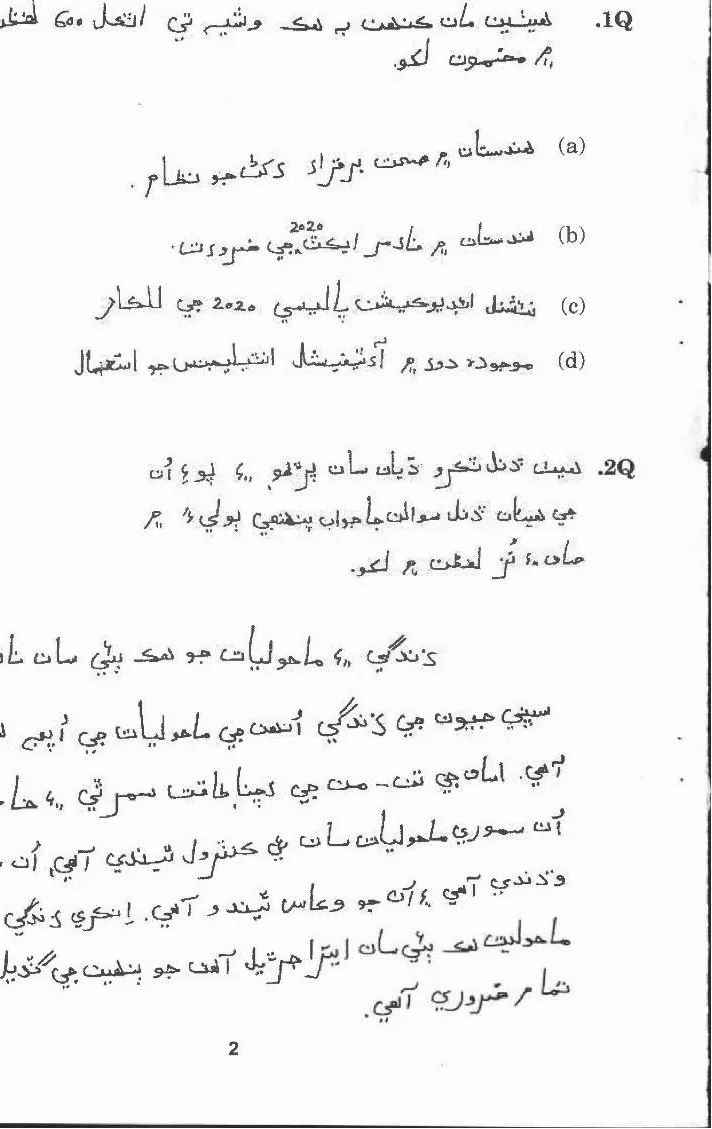 1Q. هيٺين مان ڪنهن به هڪ وشيه تي اٽڪل 600 لفظن
۾ مضمون لکو.
(a) هندستان ۾ صحت برقرار رکڻ جو نظام.
(b) هندستان ۾ فارمر ايڪٽ 2020 جي ضرورت.
(c) نئشنل ايڊيوڪيشن پاليسي 2020 جي للڪار
(d) موجوده دور ۾ آرٽيفيشل انٽيليجنس جو استعمال
2Q. هيٺ ڏنل ٽڪرو ڌيان سان پڙهو، ۽ پوءِ اُن
جي هيٺان ڏنل سوالن جا جواب پنهنجي ٻوليءَ ۾
صاف ۽ لفظن ۾ لکو.
زندگي ۽ ماحوليات جو هڪ ٻئي سان
سڀني جيون جي زندگي اُنهن جي ماحوليات جي اُپج
آهي. اسان جي تن - من جي رچنا، طاقت سمرٿي ۽
اُن سموري ماحوليات سان ئي ڪنٽرول ٿيندي آهي، اُن
وڌندي آهي ۽ اُن جو وڪاس ٿيندو آهي. اِنڪري زندگي
ماحوليت هڪ ٻئي سان ايترا جڙيل آهن جو ٻنهين جي گڏيل
تمام ضروري آهي.
2